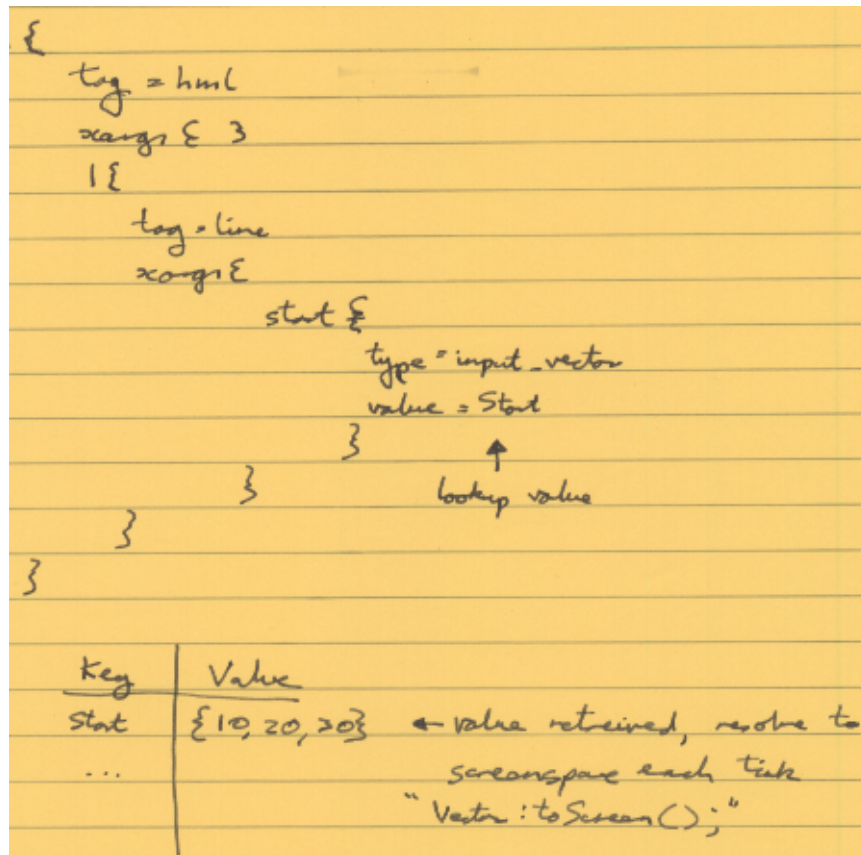 {
tag = hml
xargs { }
1 {
tag = line
xargs {
start {
type = input_vector
value = Start
}
}
lookup value
}
}
Key Value
Start {10, 20, 30} ← value retreived, resolve to
... screenspace each tick
"Vector:toScreen();"